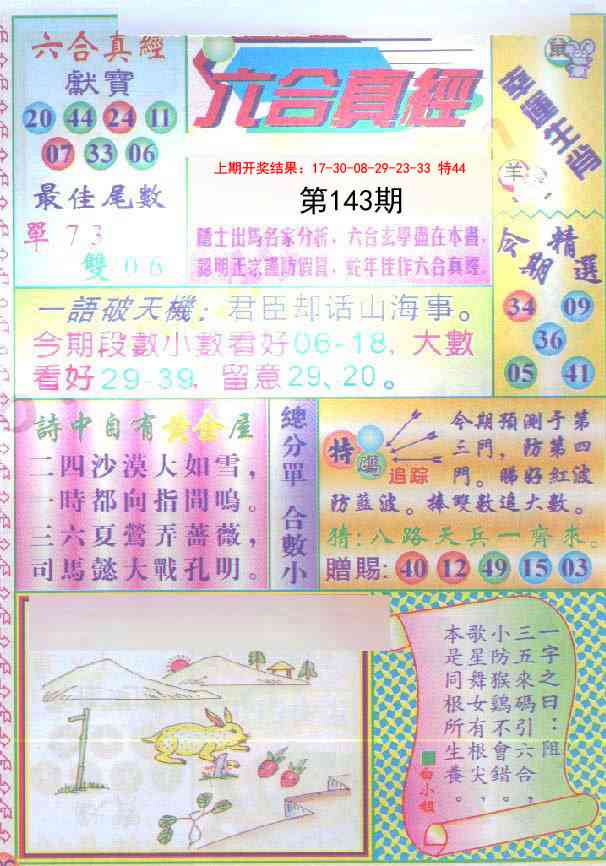 六合真經
獻寶
20 44 24 11
07 33 06
最佳尾數
單 7 3
雙 0 6
六合真經
上期开奖结果：17-30-08-29-23-33 特44
第143期
隱士出馬名家分析，六合玄學盡在本書，
認明正宗謹防假冒，蛇年佳作六合真經。
幸運生肖
鼠
羊
今期精選
34 09
36
05 41
一語破天機：君臣却话山海事。
今期段數小數看好06-18，大數
看好29-39，留意29、20。
詩中自有黃金屋
二四沙漠大如雪，
一時都向指間鳴。
三六夏鶯弄薔薇，
司馬懿大戰孔明。
總分單 合數小
特碼
追踪
今期預測于第
三門，防第四
門。睇好紅波
防藍波。捧雙數追大數。
猜：八路天兵一齊來。
贈賜：40 12 49 15 03
一字之曰：阻
三五來碼引六合，
小防猴鷄不會錯，
歌星舞女有根尖，
本是同根所生養。
白小姐